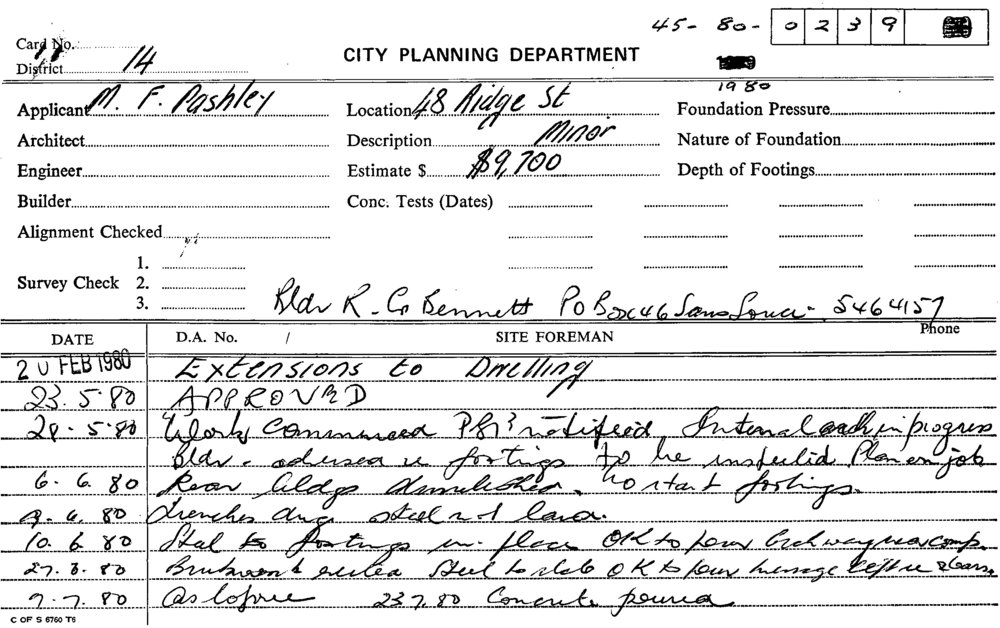 45- 80- 0 2 3 9
Card No.
CITY PLANNING DEPARTMENT
District 14
1980
Applicant M. F. Pashley Location 48 Ridge St Foundation Pressure
Architect Description Minor Nature of Foundation
Engineer Estimate $ $9,700 Depth of Footings
Builder Conc. Tests (Dates)
Alignment Checked
1.
Survey Check 2.
3.
Bldr R. G Bennett PO Box 46 Sans Souci - 546 4157
Phone
DATE D.A. No. / SITE FOREMAN
20 FEB 1980 Extensions to Dwelling
23.5.80 APPROVED
28.5.80 Work commenced notified Internal in progress
Bldr. re footings to be inspected Plan on job
6.6.80 Rear bldgs demolished. to start footings.
9.6.80 Trenches dug steel not
10.6.80 Steel to footings in place OK to pour
27.6.80 Brickwork Steel to slab OK to pour message left re
9.7.80 As before 23 7.80 Concrete poured
C OF S 6760 T6